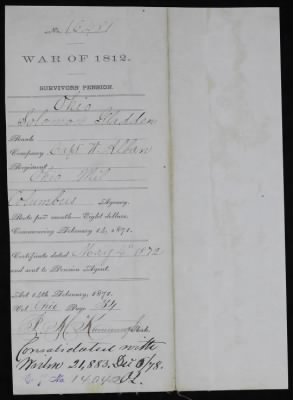 No.
WAR OF 1812.
SURVIVORS' PENSION.
Ohio
Solomon Gladden
Rank
Company Capt W. Alban
Regiment Ohio Mil
Columbus Agency.
Rate per month—Eight dollars.
Commencing February 14, 1871.
Certificate dated May 1872
and sent to Pension Agent.
Act 14th February, 1871.
Vol. One Page
Clerk.
Consolidated with
21,883. Dec 78.
No 14042.